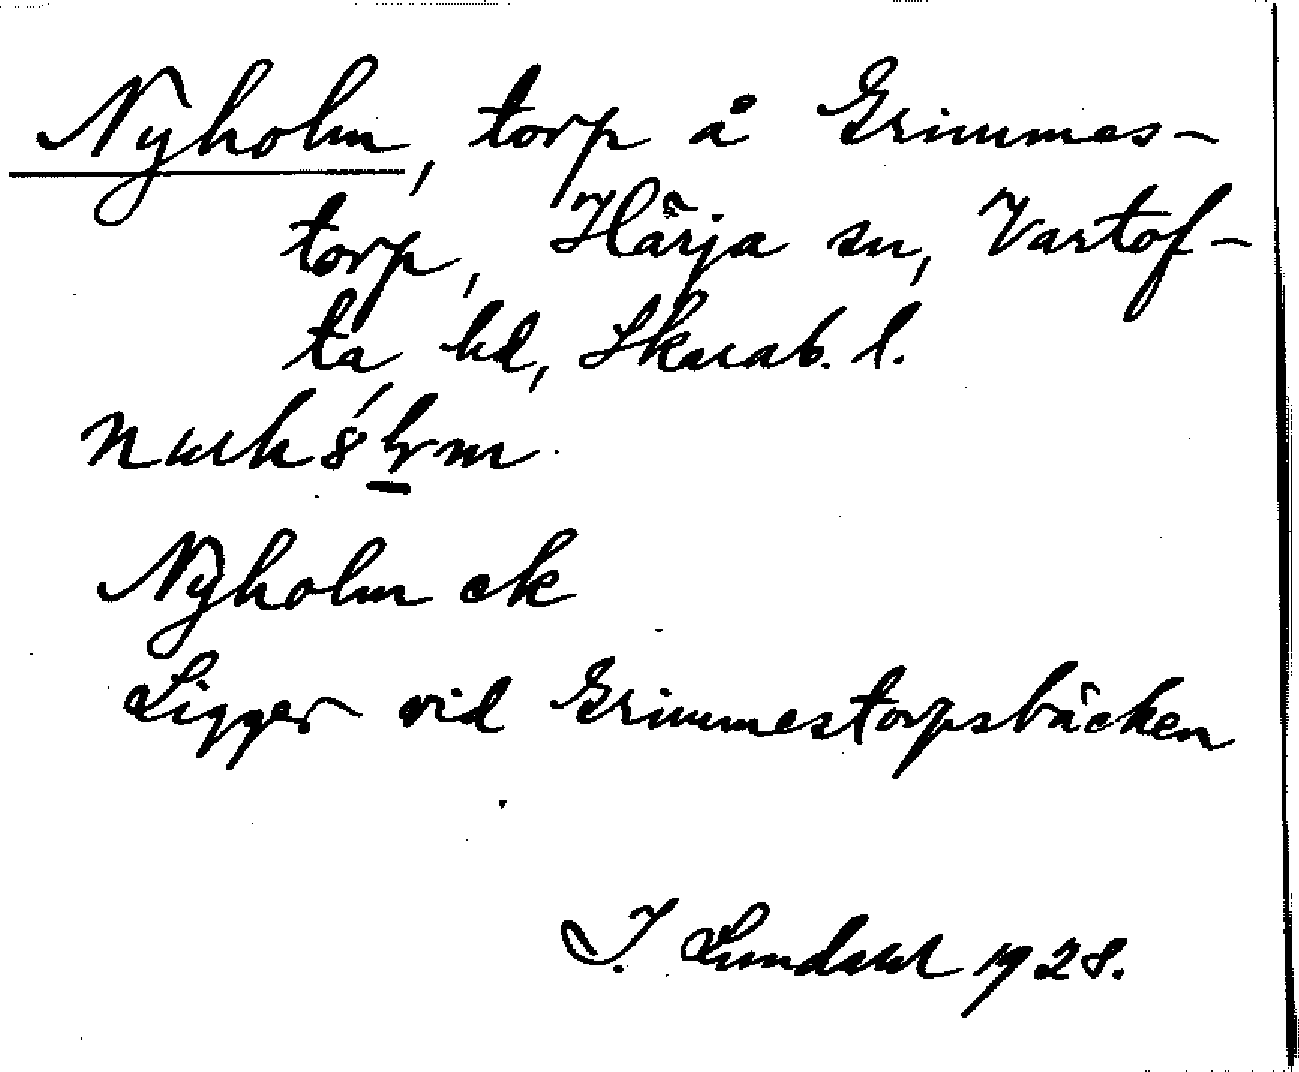 Nyholm, torp å Grimmes-
torp, Härja sn, Vartof-
ta hd, Skarab. l.
Nyholm ek
Ligger vid Grimmestorpsbäcken
I. Lundahl 1928.